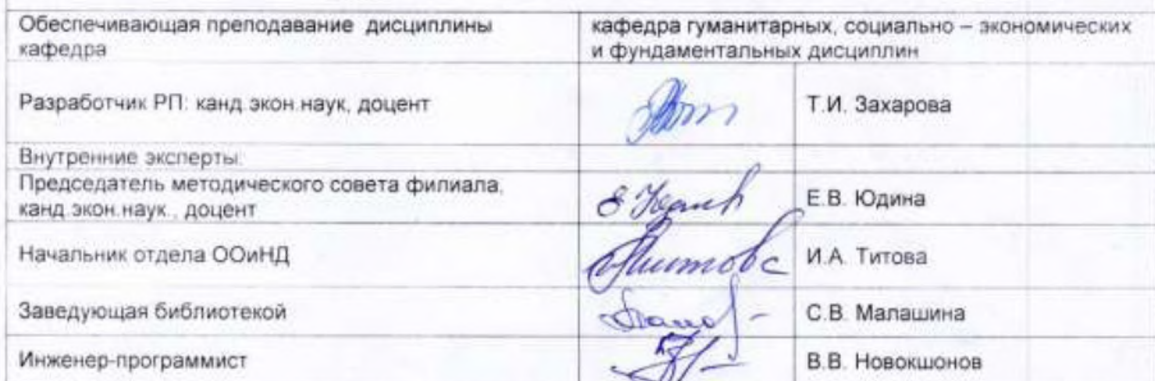 Обеспечивающая преподавание дисциплины
кафедра
кафедра гуманитарных, социально – экономических
и фундаментальных дисциплин
Разработчик РП: канд.экон.наук, доцент
Т.И. Захарова
Внутренние эксперты:
Председатель методического совета филиала,
канд.экон.наук., доцент
Е.В. Юдина
Начальник отдела ООиНД
И.А. Титова
Заведующая библиотекой
С.В. Малашина
Инженер-программист
В.В. Новокшонов